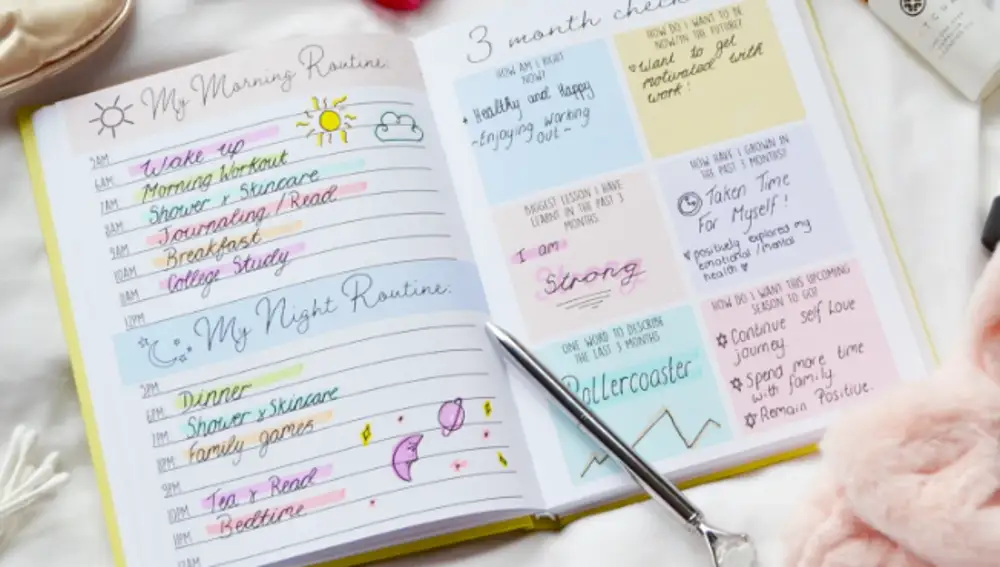 My Morning Routine:
5AM
Wake up
6AM
Morning Workout
7AM
Shower & Skincare
8AM
Journaling / Read
9AM
Breakfast
10AM
College Study
11AM
12PM
My Night Routine:
5PM
Dinner
6PM
Shower & Skincare
7PM
Family games
8PM
9PM
Tea & Read
10PM
Bedtime
11PM
12AM
3 month check
HOW AM I RIGHT
NOW?
Healthy and Happy
-Enjoying working
out-
HOW DO I WANT TO
NOW/IN THE FUTURE?
Want to get
motivated with
work!
BIGGEST LESSON I HAVE
LEARNT IN THE PAST 3
MONTHS
I am
Strong
HOW HAVE I GROWN IN
THE PAST 3 MONTHS?
Taken Time
For Myself!
positively explored my
emotional/mental
health
ONE WORD TO DESCRIBE
THE LAST 3 MONTHS
Rollercoaster
HOW DO I WANT THIS UPCOMING
SEASON TO GO?
Continue self love
journey.
Spend more time
with family.
Remain Positive.